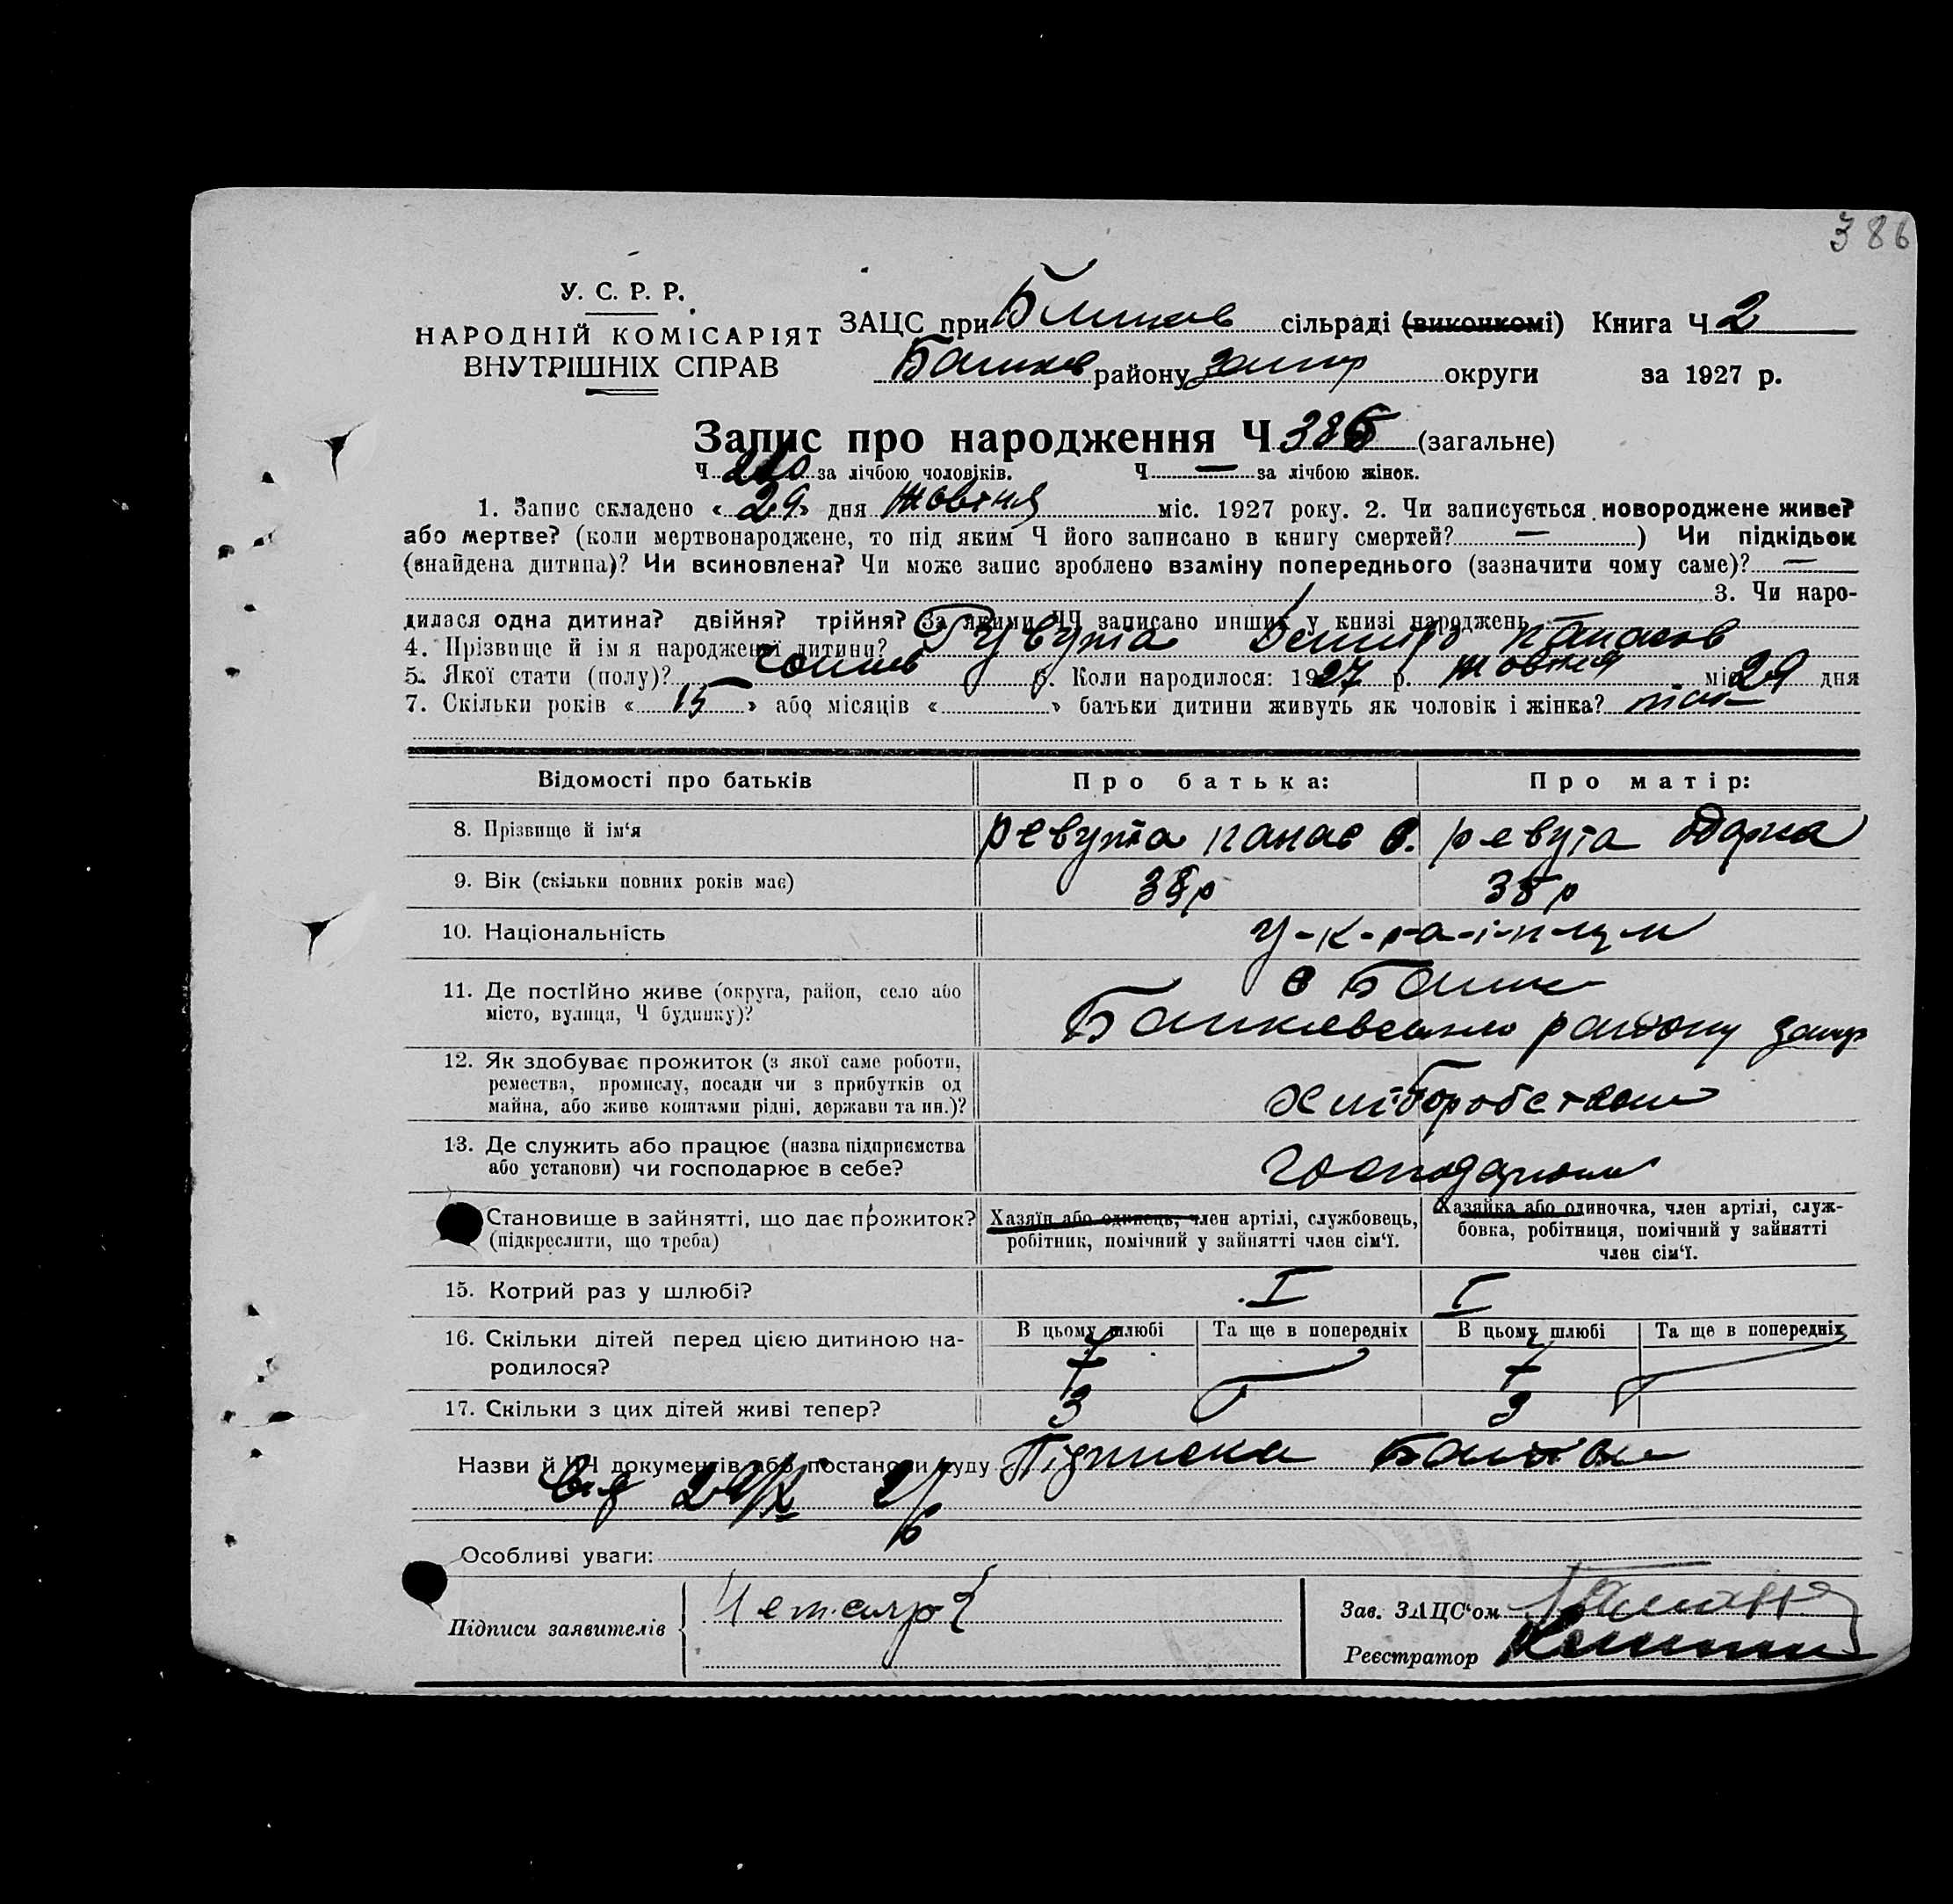 386
У. С. Р. Р.
НАРОДНІЙ КОМІСАРІЯТ
ВНУТРІШНІХ СПРАВ
ЗАЦС при сільраді (виконкомі) Книга Ч 2
району округи за 1927 р.
Запис про народження Ч 386 (загальне)
Ч. за лічбою чоловіків. Ч. — за лічбою жінок.
1. Запис складено « 29 » дня жовтня міс. 1927 року. 2. Чи записується новороджене живе?
або мертве? (коли мертвонароджене, то під яким Ч його записано в книгу смертей? — ) Чи підкідьок
(знайдена дитина)? Чи всиновлена? Чи може запис зроблено взаміну попереднього (зазначити чому саме)? —
3. Чи наро-
дилася одна дитина? двійня? трійня? За якими ЧЧ записано инших у книзі народжень
4. Прізвище й ім я народженої дитини?
5. Якої стати (полу)? 6. Коли народилося: 1927 р. жовтня міс 29 дня
7. Скільки років « 15 » або місяців « » батьки дитини живуть як чоловік і жінка?
Відомості про батьків Про батька: Про матір:
8. Прізвище й ім‘я Ревута Панас Ревута Одарка
9. Вік (скільки повних років має) 38р 38р
10. Національність У-к-р-а-ї-н-ц-и
11. Де постійно живе (округа, район, село або
місто, вулиця, Ч будинку)? району
12. Як здобуває прожиток (з якої саме роботи,
ремества, промислу, посади чи з прибутків од
майна, або живе коштами рідні, держави та ин.)? хліборобством
13. Де служить або працює (назва підприємства
або установи) чи господарює в себе?
Становище в зайнятті, що дає прожиток?
(підкреслити, що треба)
Хазяїн або одинець, член артілі, службовець,
робітник, помічний у зайнятті член сім‘ї.
Хазяйка або одиночка, член артілі, служ-
бовка, робітниця, помічний у зайнятті
член сім‘ї.
15. Котрий раз у шлюбі? I I
16. Скільки дітей перед цією дитиною на-
родилося?
В цьому шлюбі Та ще в попередніх В цьому шлюбі Та ще в попередніх
17. Скільки з цих дітей живі тепер? 3 3
Назви й ЧЧ документів або постанови суду Підписка
від 29/X
Особливі уваги:
Підписи заявителів
Зав. ЗАЦС‘ом
Реєстратор